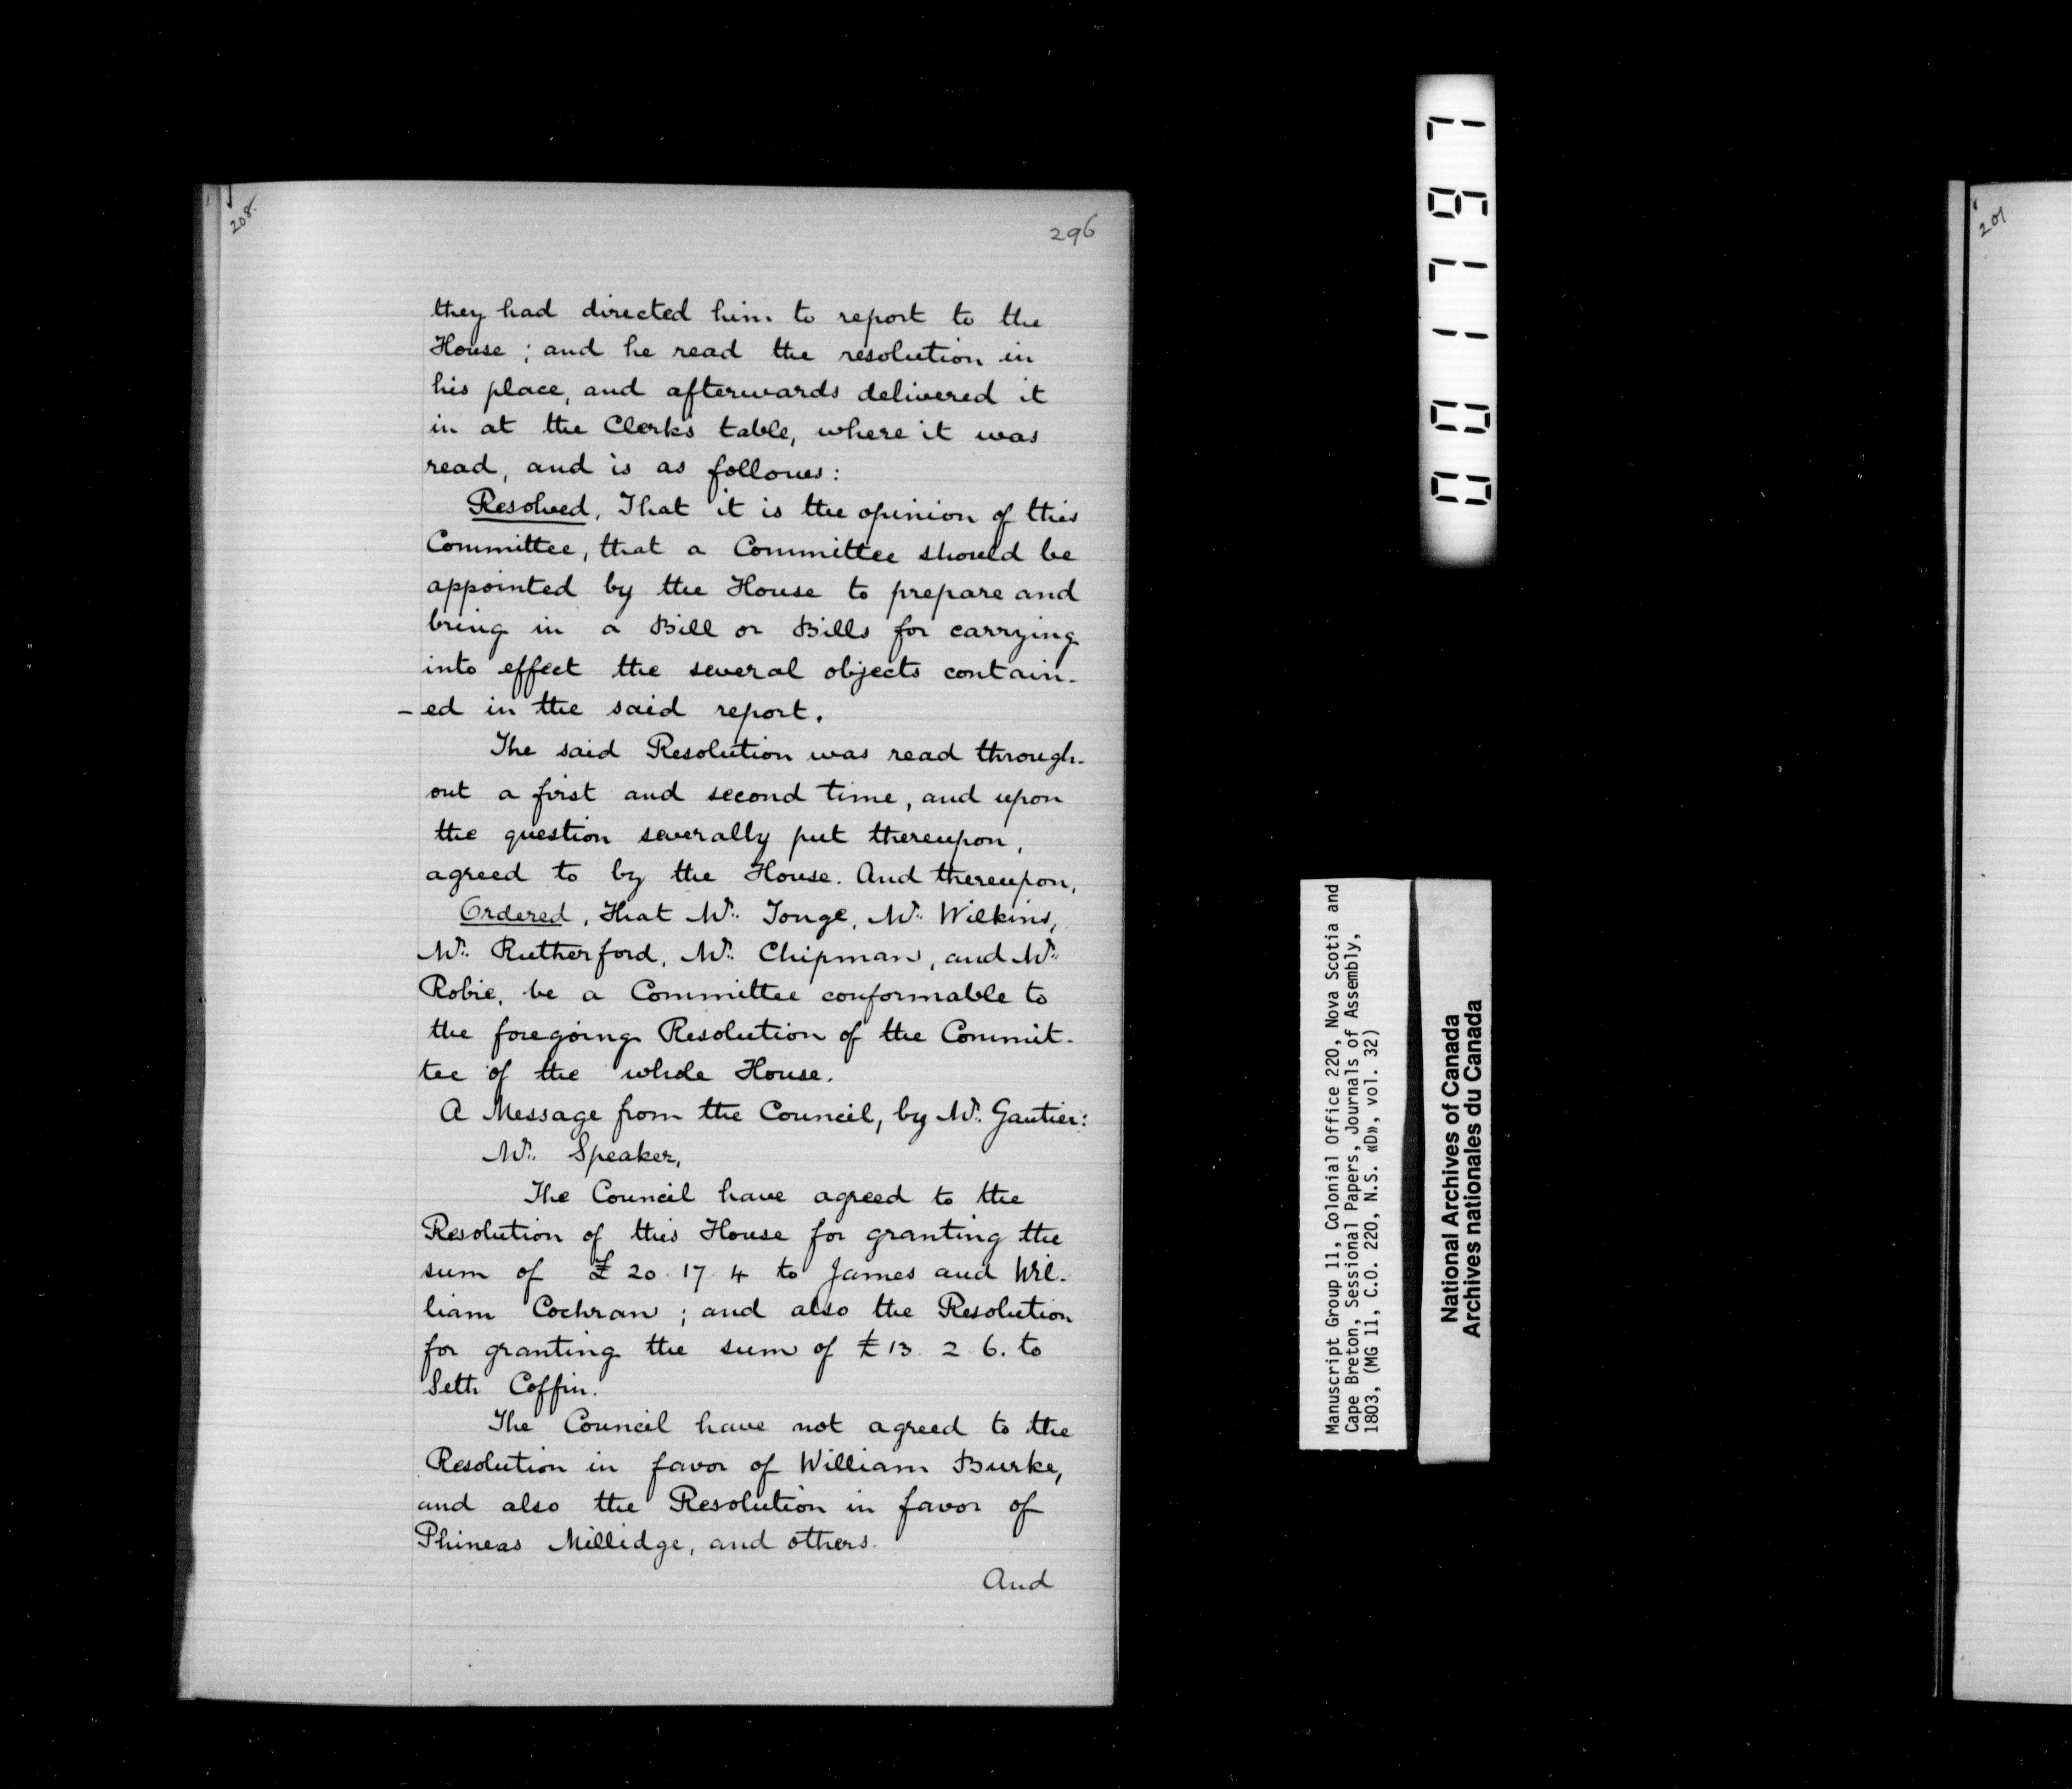 208.
296
they had directed him to report to the
House ; and he read the resolution in
his place, and afterwards delivered it
in at the Clerk's table, where it was
read, and is as follows :
Resolved, That it is the opinion of this
Committee, that a Committee should be
appointed by the House to prepare and
bring in a Bill or Bills for carrying
into effect the several objects contain-
-ed in the said report.
The said Resolution was read through-
out a first and second time, and upon
the question severally put thereupon,
agreed to by the House. And thereupon,
Ordered, that Mr. Tonge, Mr. Wilkins,
Mr. Rutherford, Mr. Chipman, and Mr.
Robie, be a Committee conformable to
the foregoing Resolution of the Commit-
tee of the whole House.
A Message from the Council, by Mr. Gautier:
Mr. Speaker,
The Council have agreed to the
Resolution of this House for granting the
sum of £ 20 17 4 to James and Wil-
liam Cochran ; and also the Resolution
for granting the sum of £ 13 2 6. to
Seth Coffin.
The Council have not agreed to the
Resolution in favor of William Burke,
and also the Resolution in favor of
Phineas Millidge, and others.
And
Manuscript Group 11, Colonial Office 220, Nova Scotia and
Cape Breton, Sessional Papers, Journals of Assembly,
1803, (MG 11, C.O. 220, N.S. «D», vol. 32)
National Archives of Canada
Archives nationales du Canada